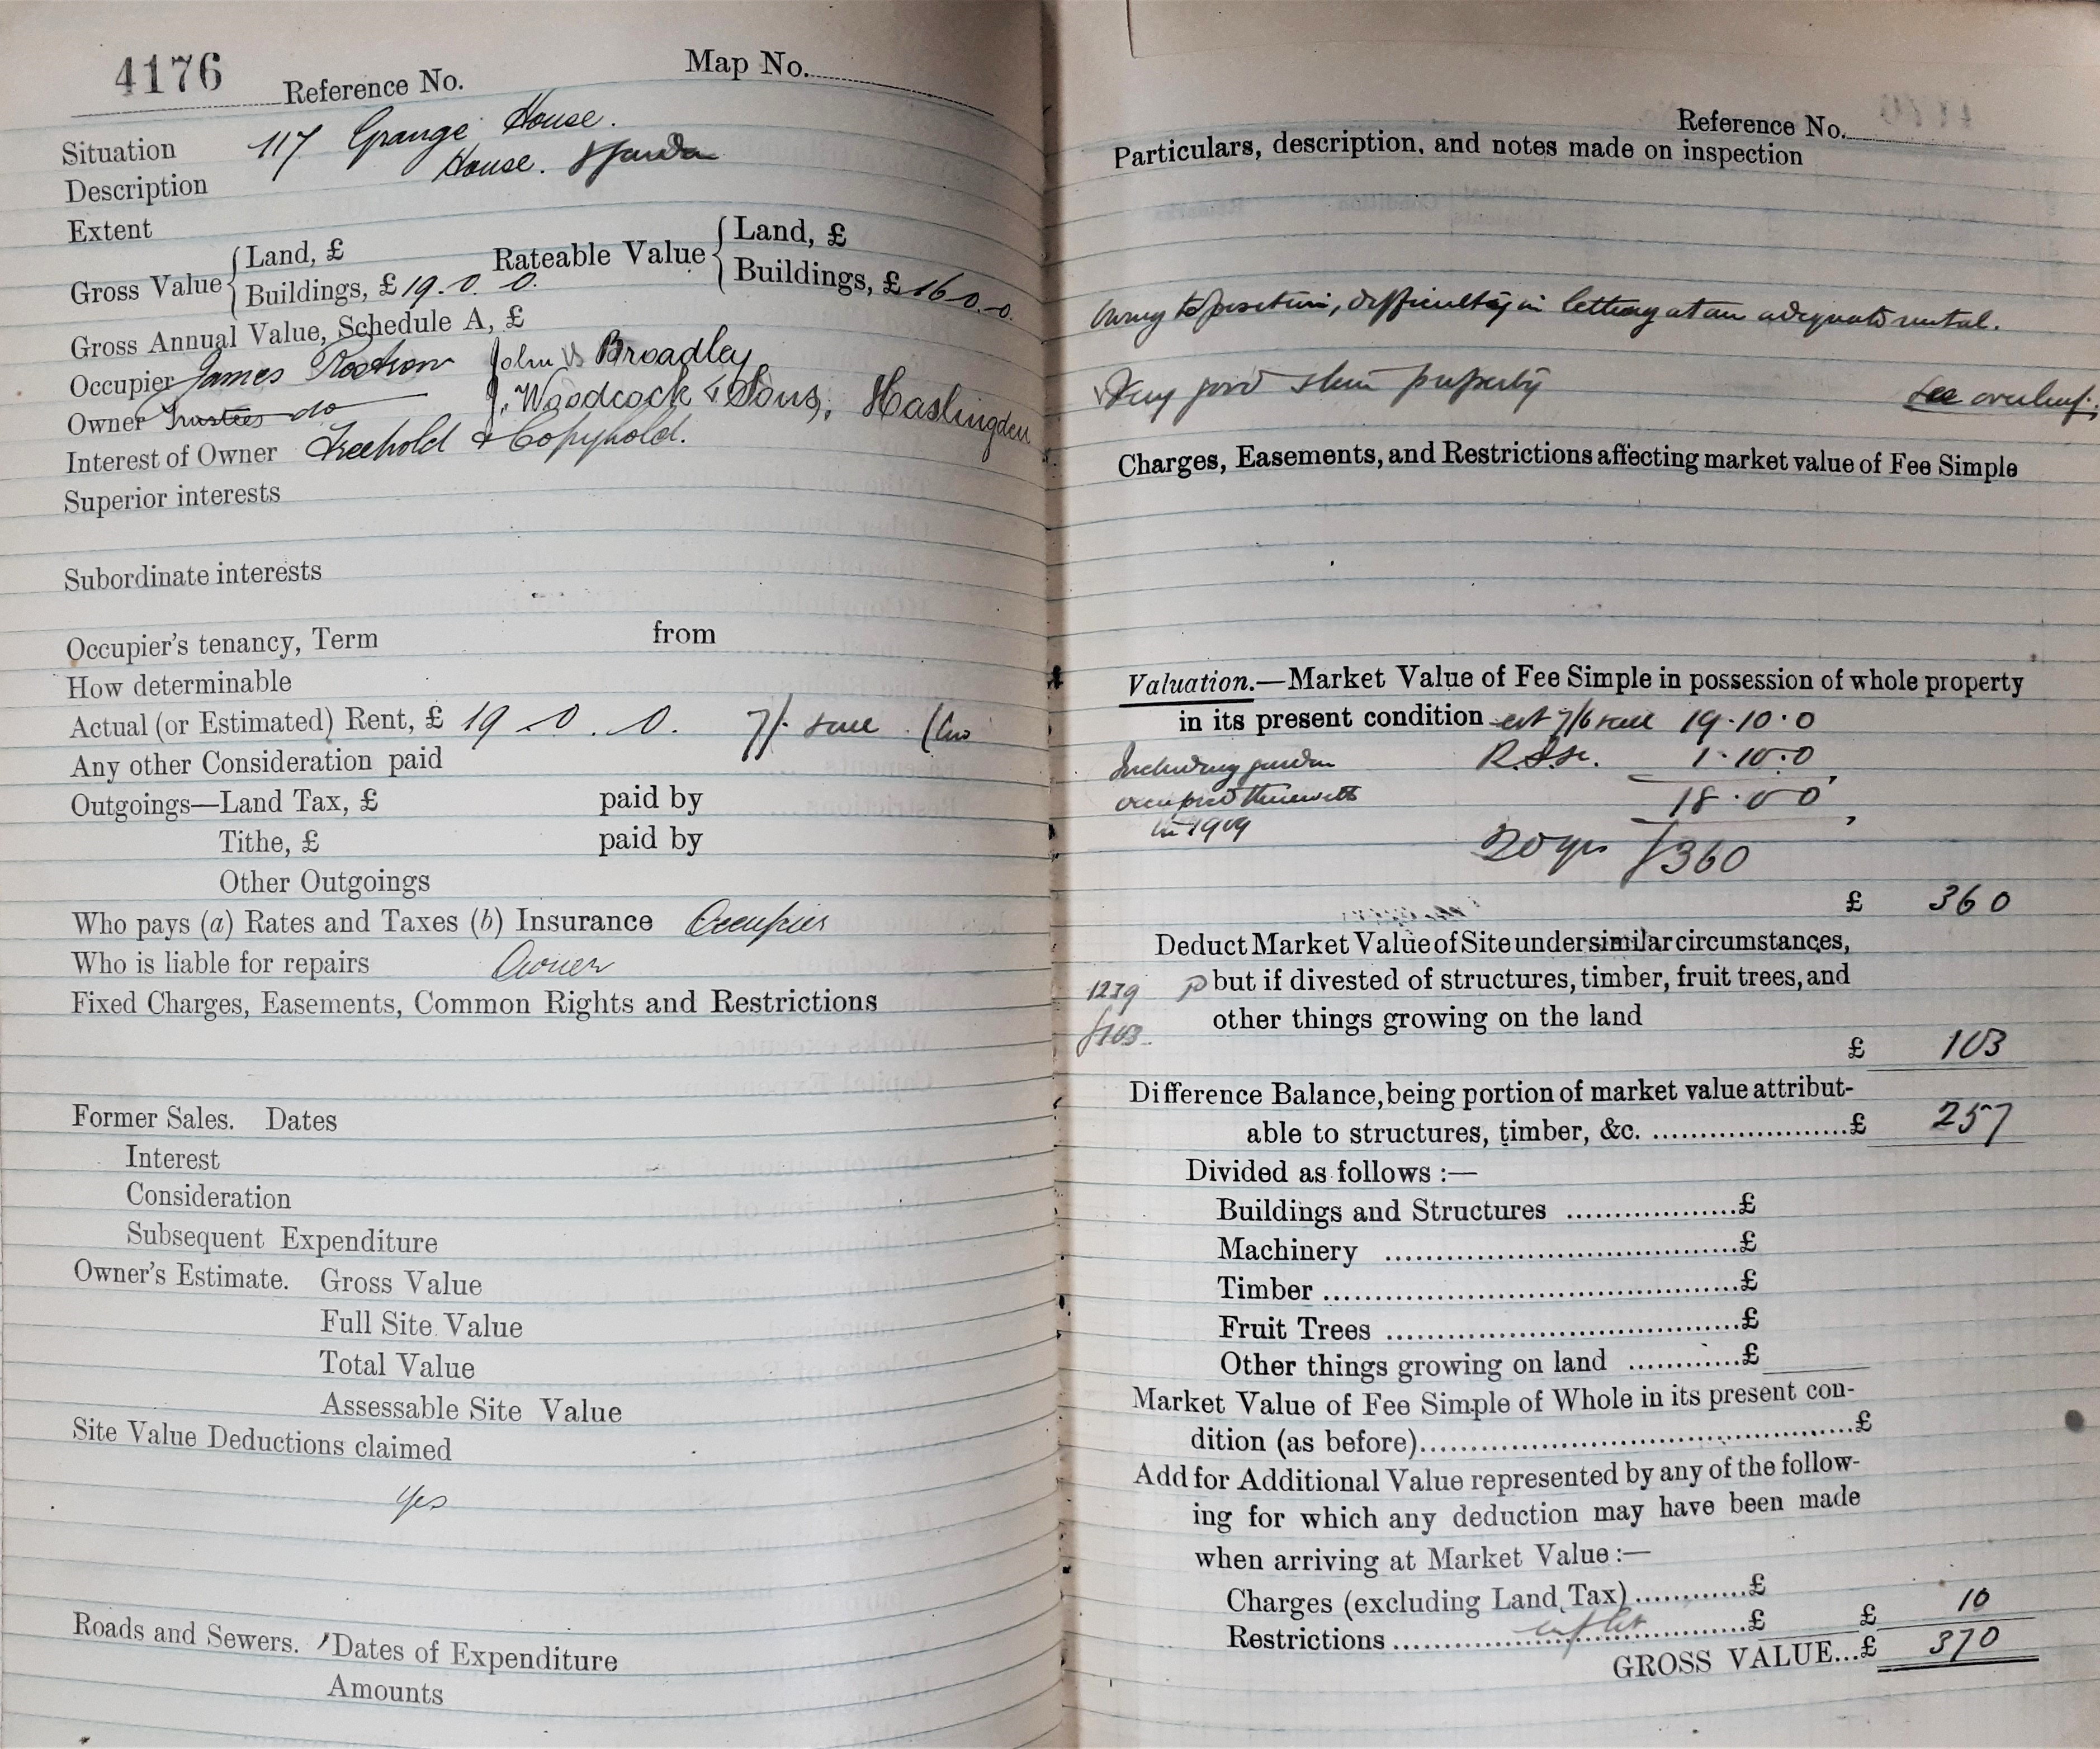 4176 Reference No. Map No.
Situation 117 Grange House.
Description House. & Garden
Extent
Gross Value { Land, £ Rateable Value { Land, £
Buildings, £ 19. 0. 0. Buildings, £ 16 0. 0.
Gross Annual Value, Schedule A, £
Occupier James Rostron John Broadley
Owner Trustees do J. Woodcock & Sons, Haslingden
Interest of Owner Freehold & Copyhold.
Superior interests
Subordinate interests
Occupier's tenancy, Term from
How determinable
Actual (or Estimated) Rent, £ 19 . 0 . 0. 7/-
Any other Consideration paid
Outgoings—Land Tax, £ paid by
Tithe, £ paid by
Other Outgoings
Who pays (a) Rates and Taxes (b) Insurance Occupier
Who is liable for repairs Owner
Fixed Charges, Easements, Common Rights and Restrictions
Former Sales. Dates
Interest
Consideration
Subsequent Expenditure
Owner's Estimate. Gross Value
Full Site Value
Total Value
Assessable Site Value
Site Value Deductions claimed
Yes
Roads and Sewers. Dates of Expenditure
Amounts
Reference No.
Particulars, description, and notes made on inspection
Owing to position, difficulty in letting at an adequate rental.
Very good property
See overleaf.
Charges, Easements, and Restrictions affecting market value of Fee Simple
Valuation.—Market Value of Fee Simple in possession of whole property
in its present condition est 7/6 19.10.0
Including garden 1.10.0
occupied therewith 18.0.0
in 1909
20 yrs £360
£ 360
Deduct Market Value of Site under similar circumstances,
1239 but if divested of structures, timber, fruit trees, and
£103 other things growing on the land
£ 103
Difference Balance, being portion of market value attribut-
able to structures, timber, &c. £ 257
Divided as follows :—
Buildings and Structures £
Machinery £
Timber £
Fruit Trees £
Other things growing on land £
Market Value of Fee Simple of Whole in its present con-
dition (as before) £
Add for Additional Value represented by any of the follow-
ing for which any deduction may have been made
when arriving at Market Value :—
Charges (excluding Land Tax) £
Restrictions £ £ 10
GROSS VALUE...£ 370